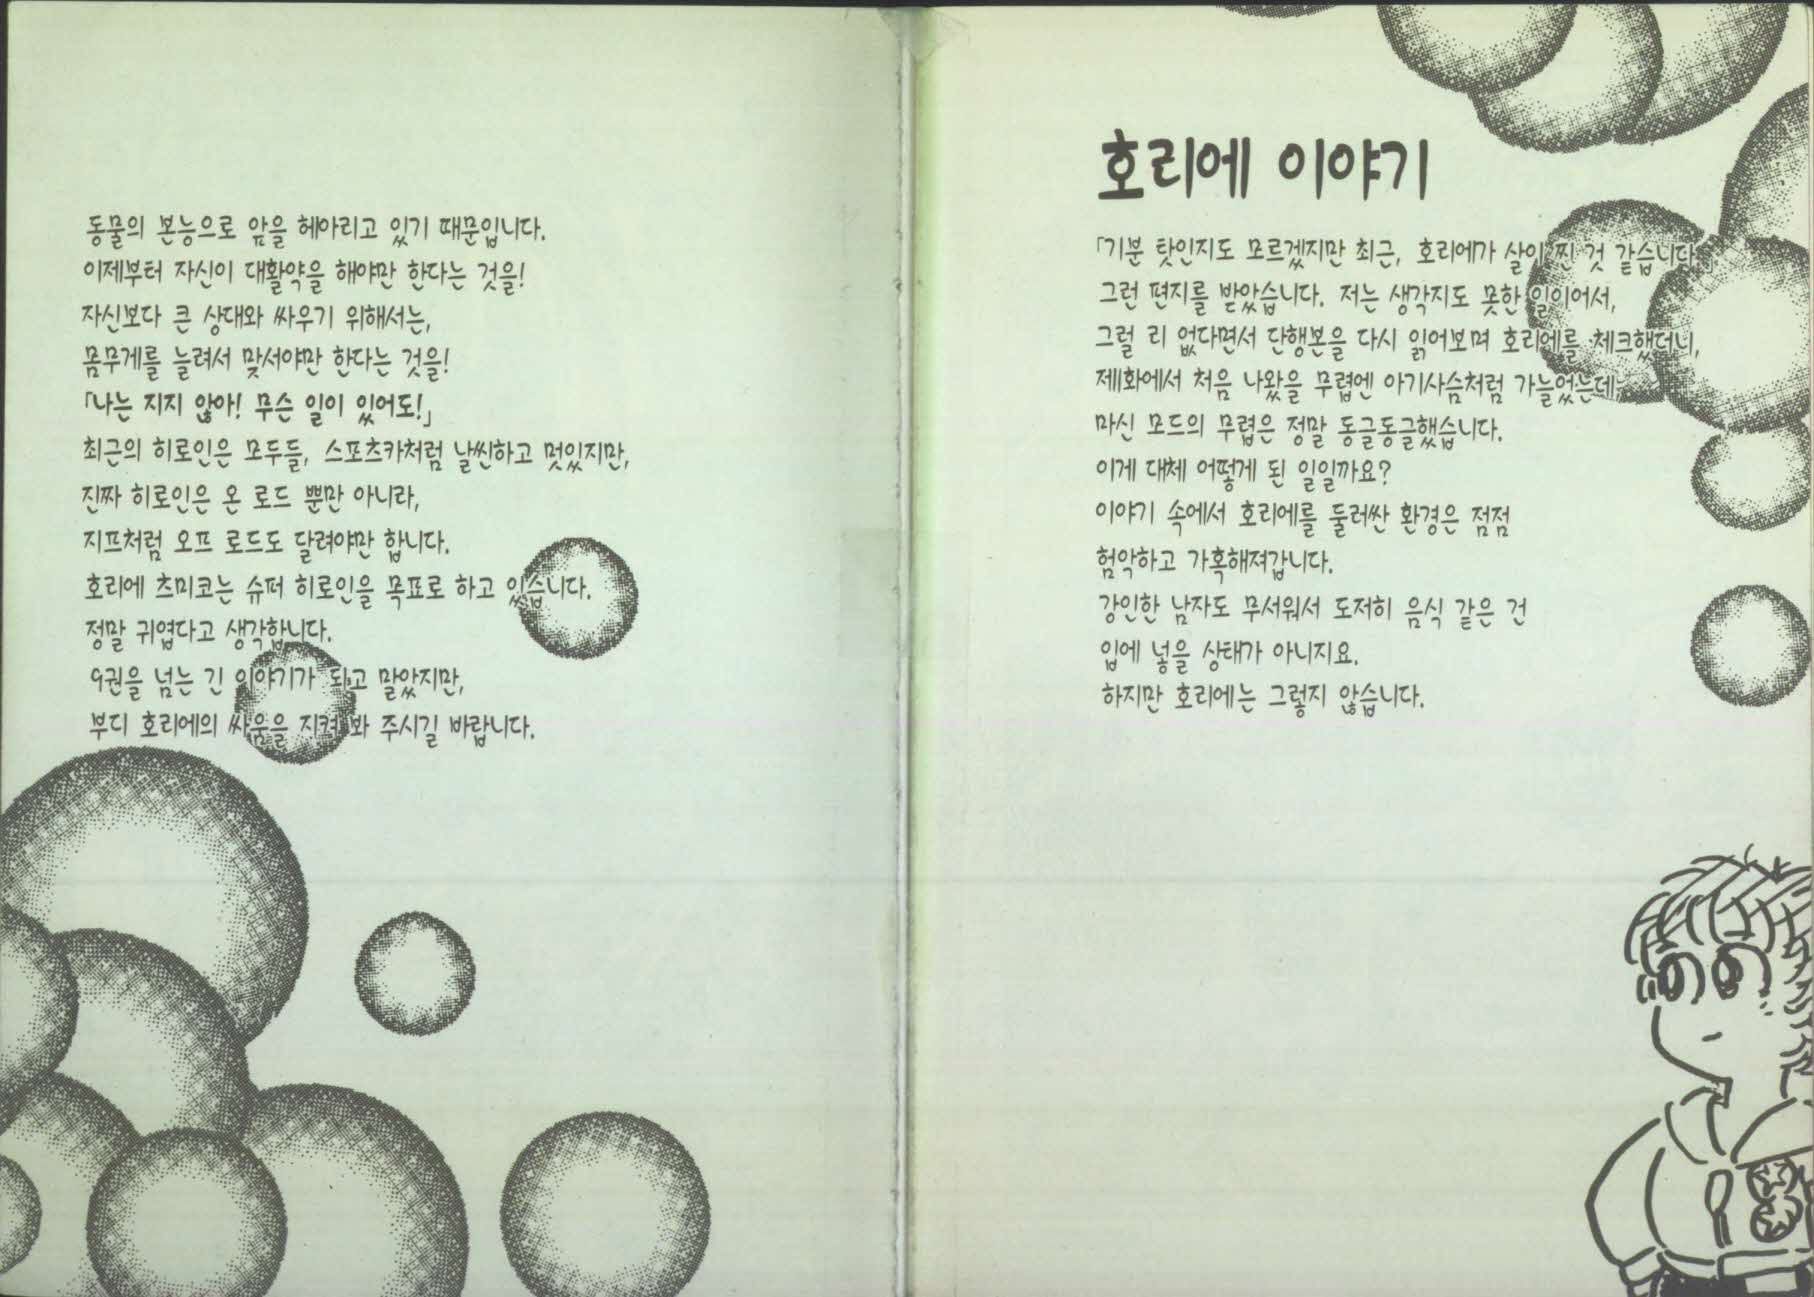 동물의 본능으로 앞을 헤아리고 있기 때문입니다.
이제부터 자신이 대활약을 해야만 한다는 것을!
자신보다 큰 상대와 싸우기 위해서는,
몸무게를 늘려서 맞서야만 한다는 것을!
「나는 지지 않아! 무슨 일이 있어도!」
최근의 히로인은 모두들, 스포츠카처럼 날씬하고 멋있지만,
진짜 히로인은 온 로드 뿐만 아니라,
지프처럼 오프 로드도 달려야만 합니다.
호리에 츠미코는 슈퍼 히로인을 목표로 하고 있습니다.
정말 귀엽다고 생각합니다.
9권을 넘는 긴 이야기가 되고 말았지만,
부디 호리에의 싸움을 지켜 봐 주시길 바랍니다.
호리에 이야기
「기분 탓인지도 모르겠지만 최근, 호리에가 살이 찐 것 같습니다.」
그런 편지를 받았습니다. 저는 생각지도 못한 일이어서,
그럴 리 없다면서 단행본을 다시 읽어보며 호리에를 체크했더니,
제1화에서 처음 나왔을 무렵엔 아기사슴처럼 가늘었는데,
마신 모드의 무렵은 정말 동글동글했습니다.
이게 대체 어떻게 된 일일까요?
이야기 속에서 호리에를 둘러싼 환경은 점점
험악하고 가혹해져갑니다.
강인한 남자도 무서워서 도저히 음식 같은 건
입에 넣을 상태가 아니지요.
하지만 호리에는 그렇지 않습니다.